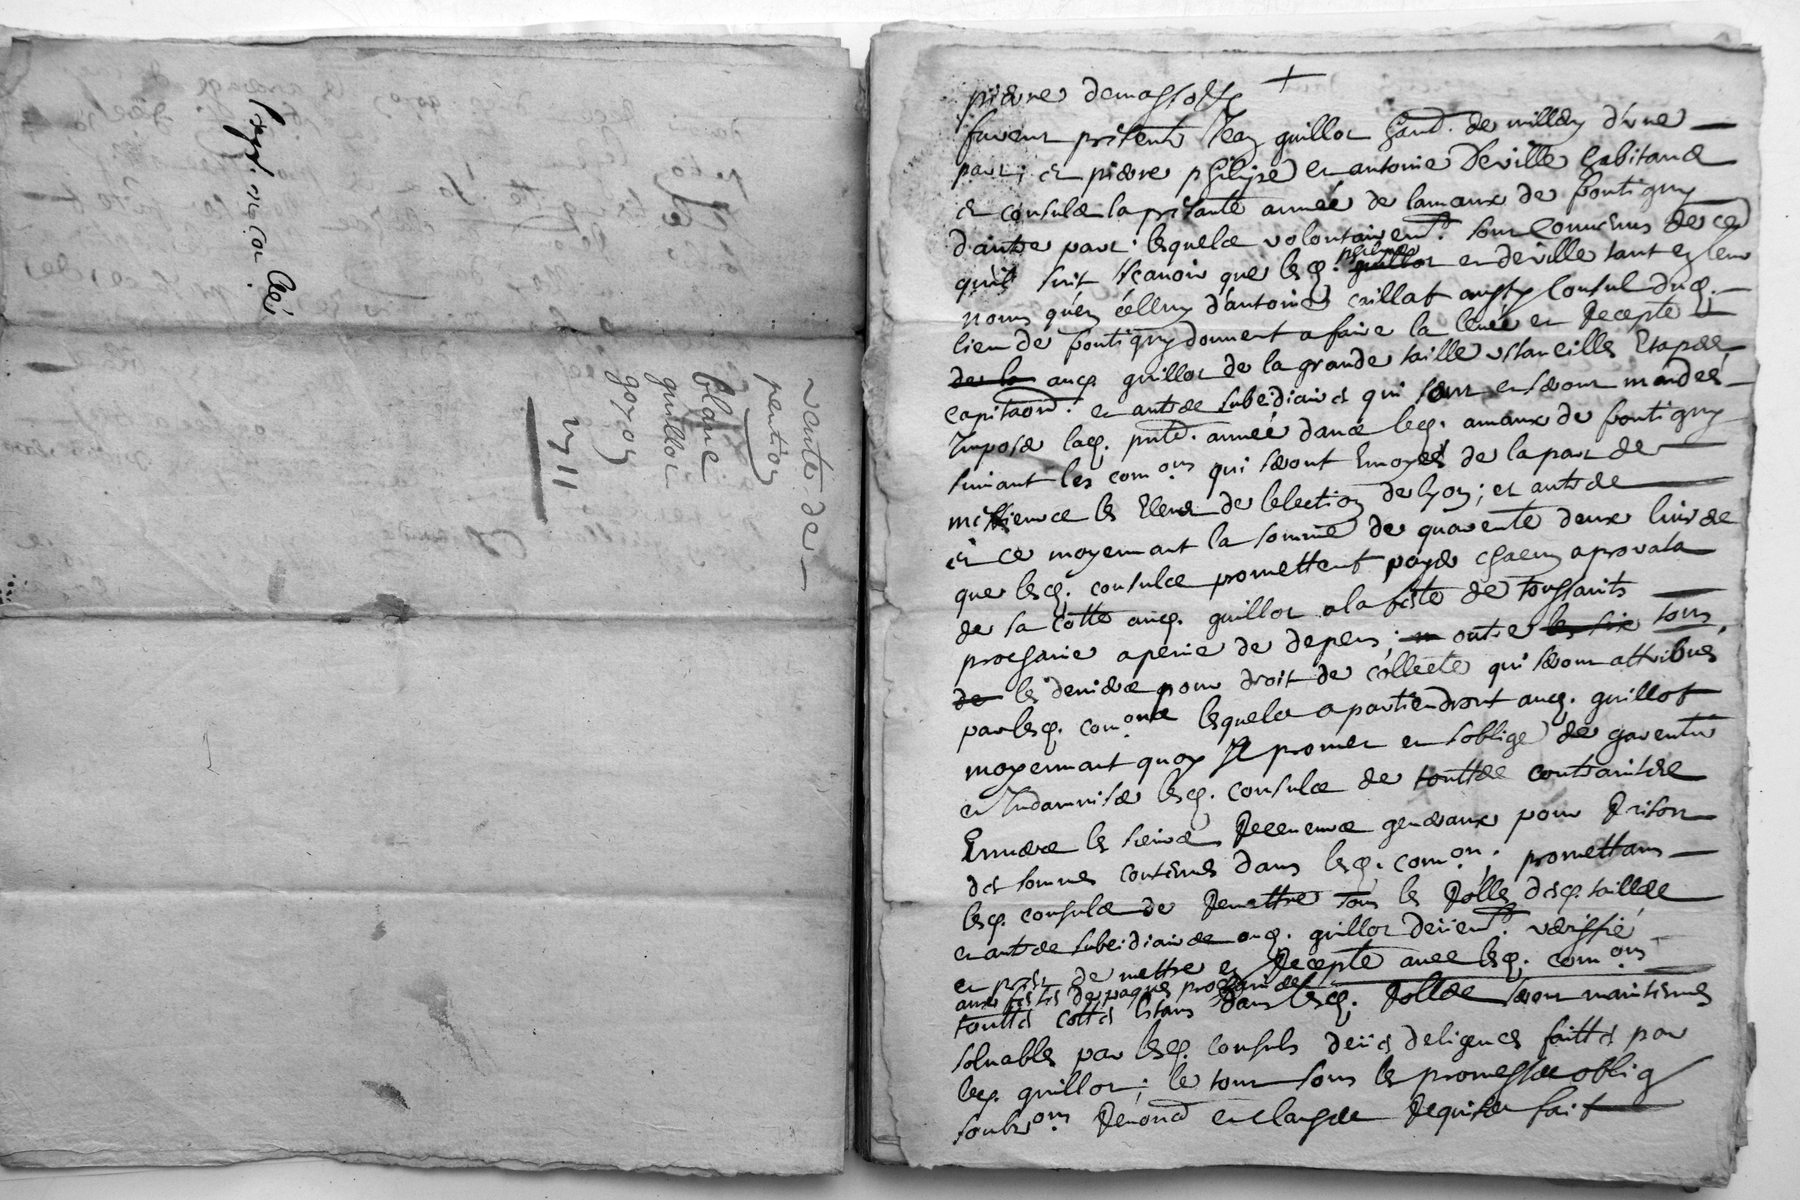 vente de
pention
blaise
guillot
goyon
pierre demassosse
furent présents Jean guillot hand. de millery d'une
part, et pierre philipe et antoine Deville habitans
et consuls la présante année de lamaux de fontigny
d'autre part; lesquels volontairemt. sont convenus de ce
qu'il suit sçavoir que lesd. philipe guillot et deville tant en leur
noms qu'en celluy d'antoine crillat aussy Consul dud.
lieu de fontigny donnent a faire la levée et Recepte
de la aud. guillot de la grande taille ustancilles Etapes
capitaon. et autres subcidiaires qui sont et seront mandés
Imposés lad. pnte. année dans led. amaux de fontigny
suivant les comons qui seront Envoyées de la part de
messieurs les Eleus de lelection de lyon; et autres
et ce moyennant la somme de quarente deux livres
que lesd. consuls promettent payer chacun a prorata
de sa cotte aud. guillot a la feste de toussaints
prochaine a peine de depens; outre les six tous
de les deniers pour droit de collecte qui seront attribués
par lesd. comons lesquels apartiendront aud. guillot
moyennant quoy Il promet et soblige de garentir
et Indamniser lesd. consuls de touttes contraintes
Envers les sieurs Receveurs generaux pour Raison
des sommes contenues dans lesd. comons. promettans
lesd. consuls de Remettre tous les Rolles desd. tailles
et autres subcidiaires aud. guillot deüemt. veriffié
et prest de mettre en Recepte avec lesd. comons
aux festes de paques prochaines
touttes cottes Estans dans lesd. Rolles seront maintenues
solvables par lesd. consuls deües deligences faittes par
led. guillot; le tout sous les promesses oblig
soubons. Renond et clauses Requises fait